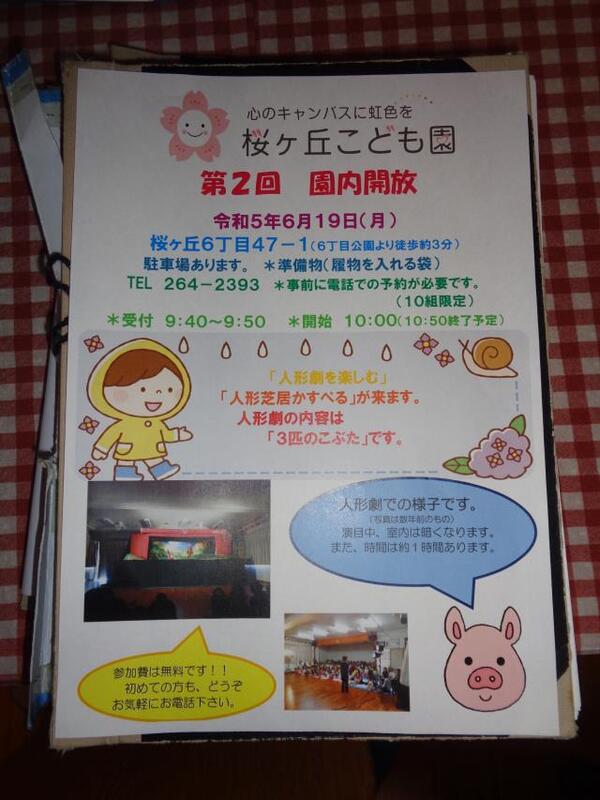 心のキャンバスに虹色を
桜ヶ丘こども園
第2回 園内開放
令和5年6月19日(月)
桜ヶ丘6丁目47-1(6丁目公園より徒歩約3分)
駐車場あります。 *準備物(履物を入れる袋)
TEL 264-2393 *事前に電話での予約が必要です。
(10組限定)
*受付 9:40~9:50 *開始 10:00(10:50終了予定)
「人形劇を楽しむ」
「人形芝居かすぺる」が来ます。
人形劇の内容は
「3匹のこぶた」です。
人形劇での様子です。
(写真は数年前のもの)
演目中、室内は暗くなります。
また、時間は約1時間あります。
参加費は無料です!!
初めての方も、どうぞ
お気軽にお電話下さい。